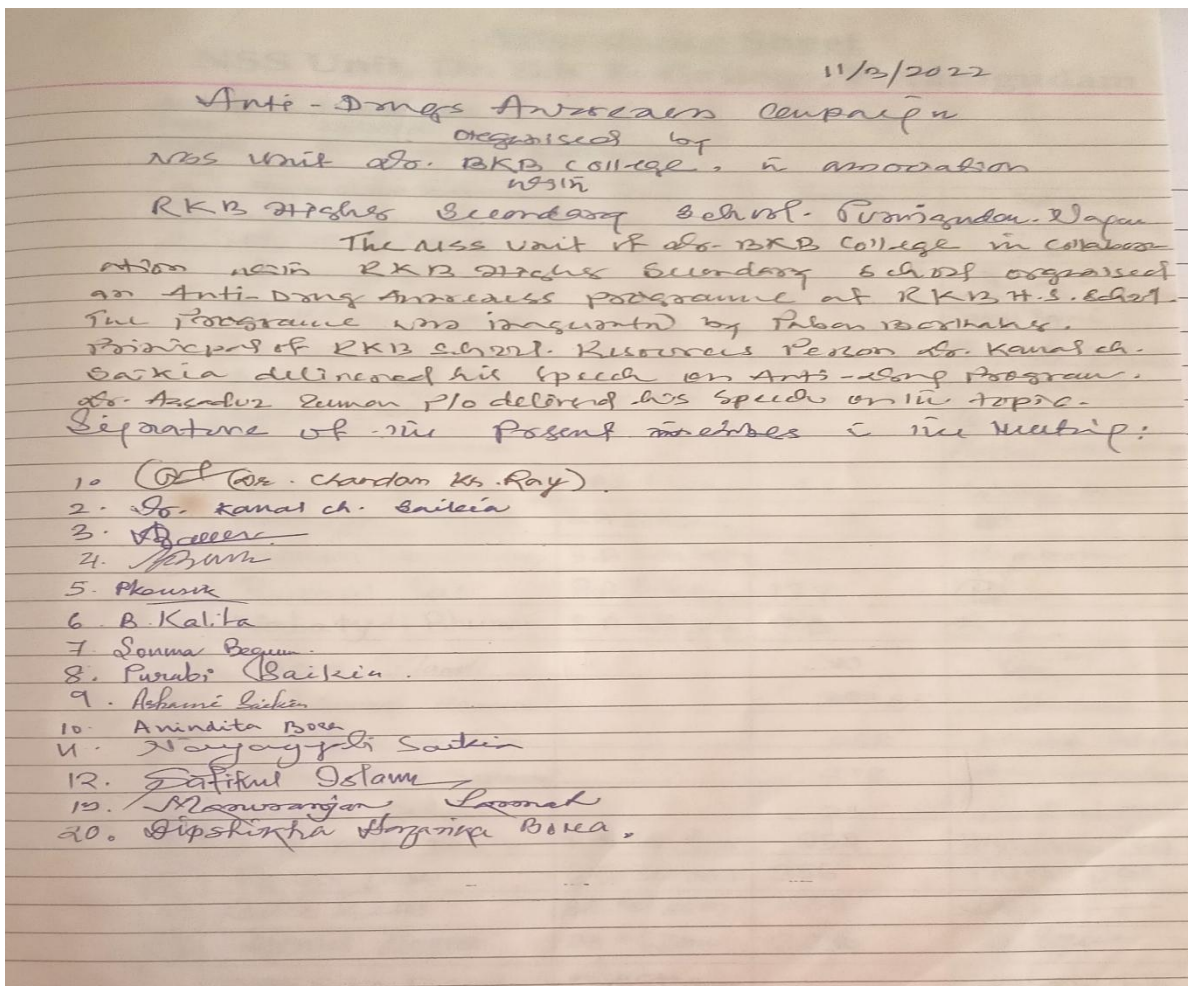 11/3/2022
Anti-Drugs Awareness Campaign
Organised by
NSS Unit Dr. BKB College, in association
with
RKB Higher Secondary School. Puranigudam. Nagaon
The NSS Unit of Dr. BKB College in collabor
ation with RKB Higher Secondary School organised
an Anti-Drug Awareness programme at RKB H.S. School.
The Programme was inaugurated by Paban Borthakur.
Principal of RKB School. Resources Person Dr. Kamal ch.
Saikia delivered his speech on Anti-drug Program.
Dr. Asaduz Zaman P/O delivered his Speech on the topic.
Signature of the Present members in the meeting:
1. (Dr. Chandam Kr. Ray).
2. Dr. Kamal ch. Saikia
3.
4.
5. PKousik
6 B. Kalita
7. Begum.
8. Purabi Saikia.
9. Saikia
10. Anindita Bora
11. Saikia
12. Safikul Islam
13.
20. Dipshikha Hazarika Borea.